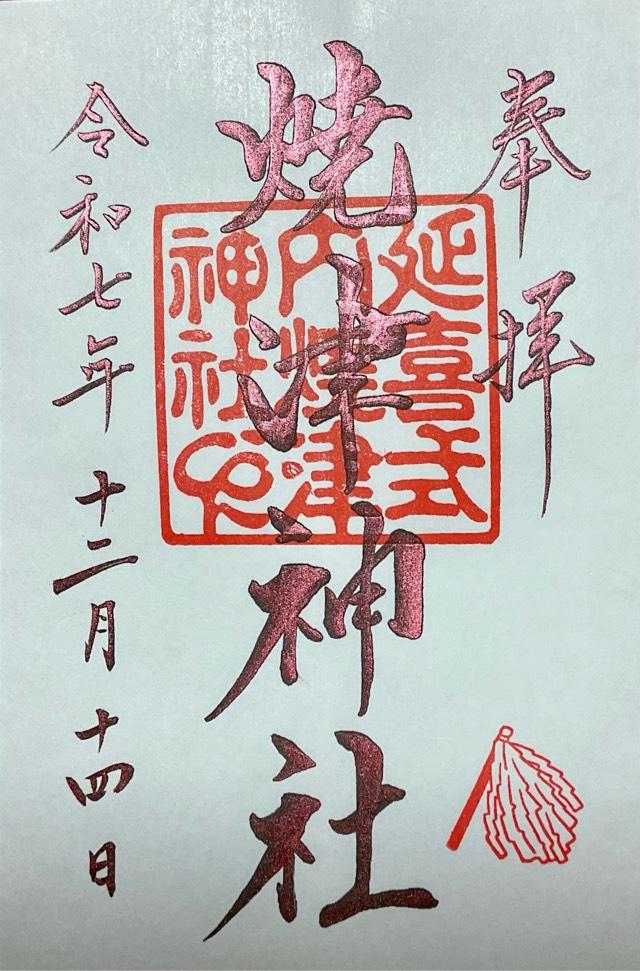 奉拝
焼津神社
延喜式
内焼津
神社之
令和七年十二月十四日